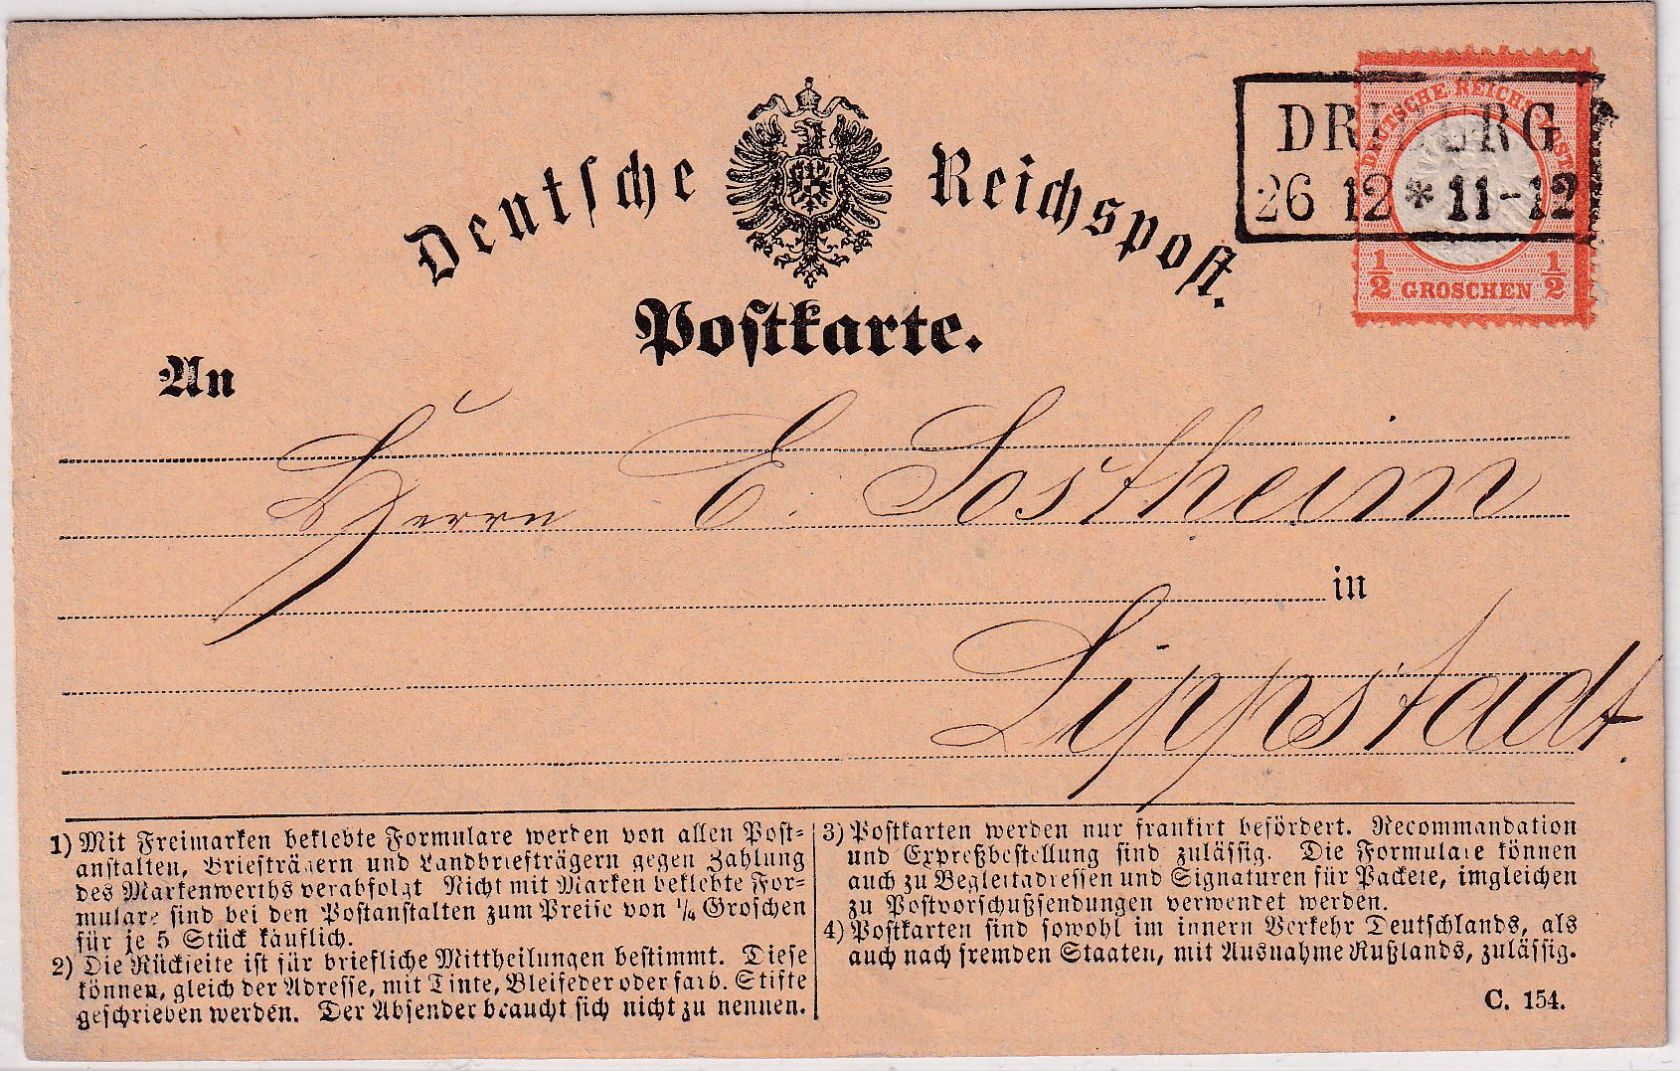 Deutsche Reichspost.
DRIBURG
26 12 * 11-12
DEUTSCHE REICHS POST
1/2 GROSCHEN 1/2
Postkarte.
An
Herrn E. Sostheim
in
Lippstadt.
1) Mit Freimarken beklebte Formulare werden von allen Post-
anstalten, Briefträgern und Landbriefträgern gegen Zahlung
des Markenwerths verabfolgt Nicht mit Marken beklebte For-
mulare sind bei den Postanstalten zum Preise von 1/4 Groschen
für je 5 Stück käuflich.
2) Die Rückseite ist für briefliche Mittheilungen bestimmt. Diese
können, gleich der Adresse, mit Tinte, Bleifeder oder farb. Stifte
geschrieben werden. Der Absender braucht sich nicht zu nennen.
3) Postkarten werden nur frankirt befördert. Recommandation
und Expreßbestellung sind zulässig. Die Formulare können
auch zu Begleitadressen und Signaturen für Packete, imgleichen
zu Postvorschußsendungen verwendet werden.
4) Postkarten sind sowohl im innern Verkehr Deutschlands, als
auch nach fremden Staaten, mit Ausnahme Rußlands, zulässig.
C. 154.